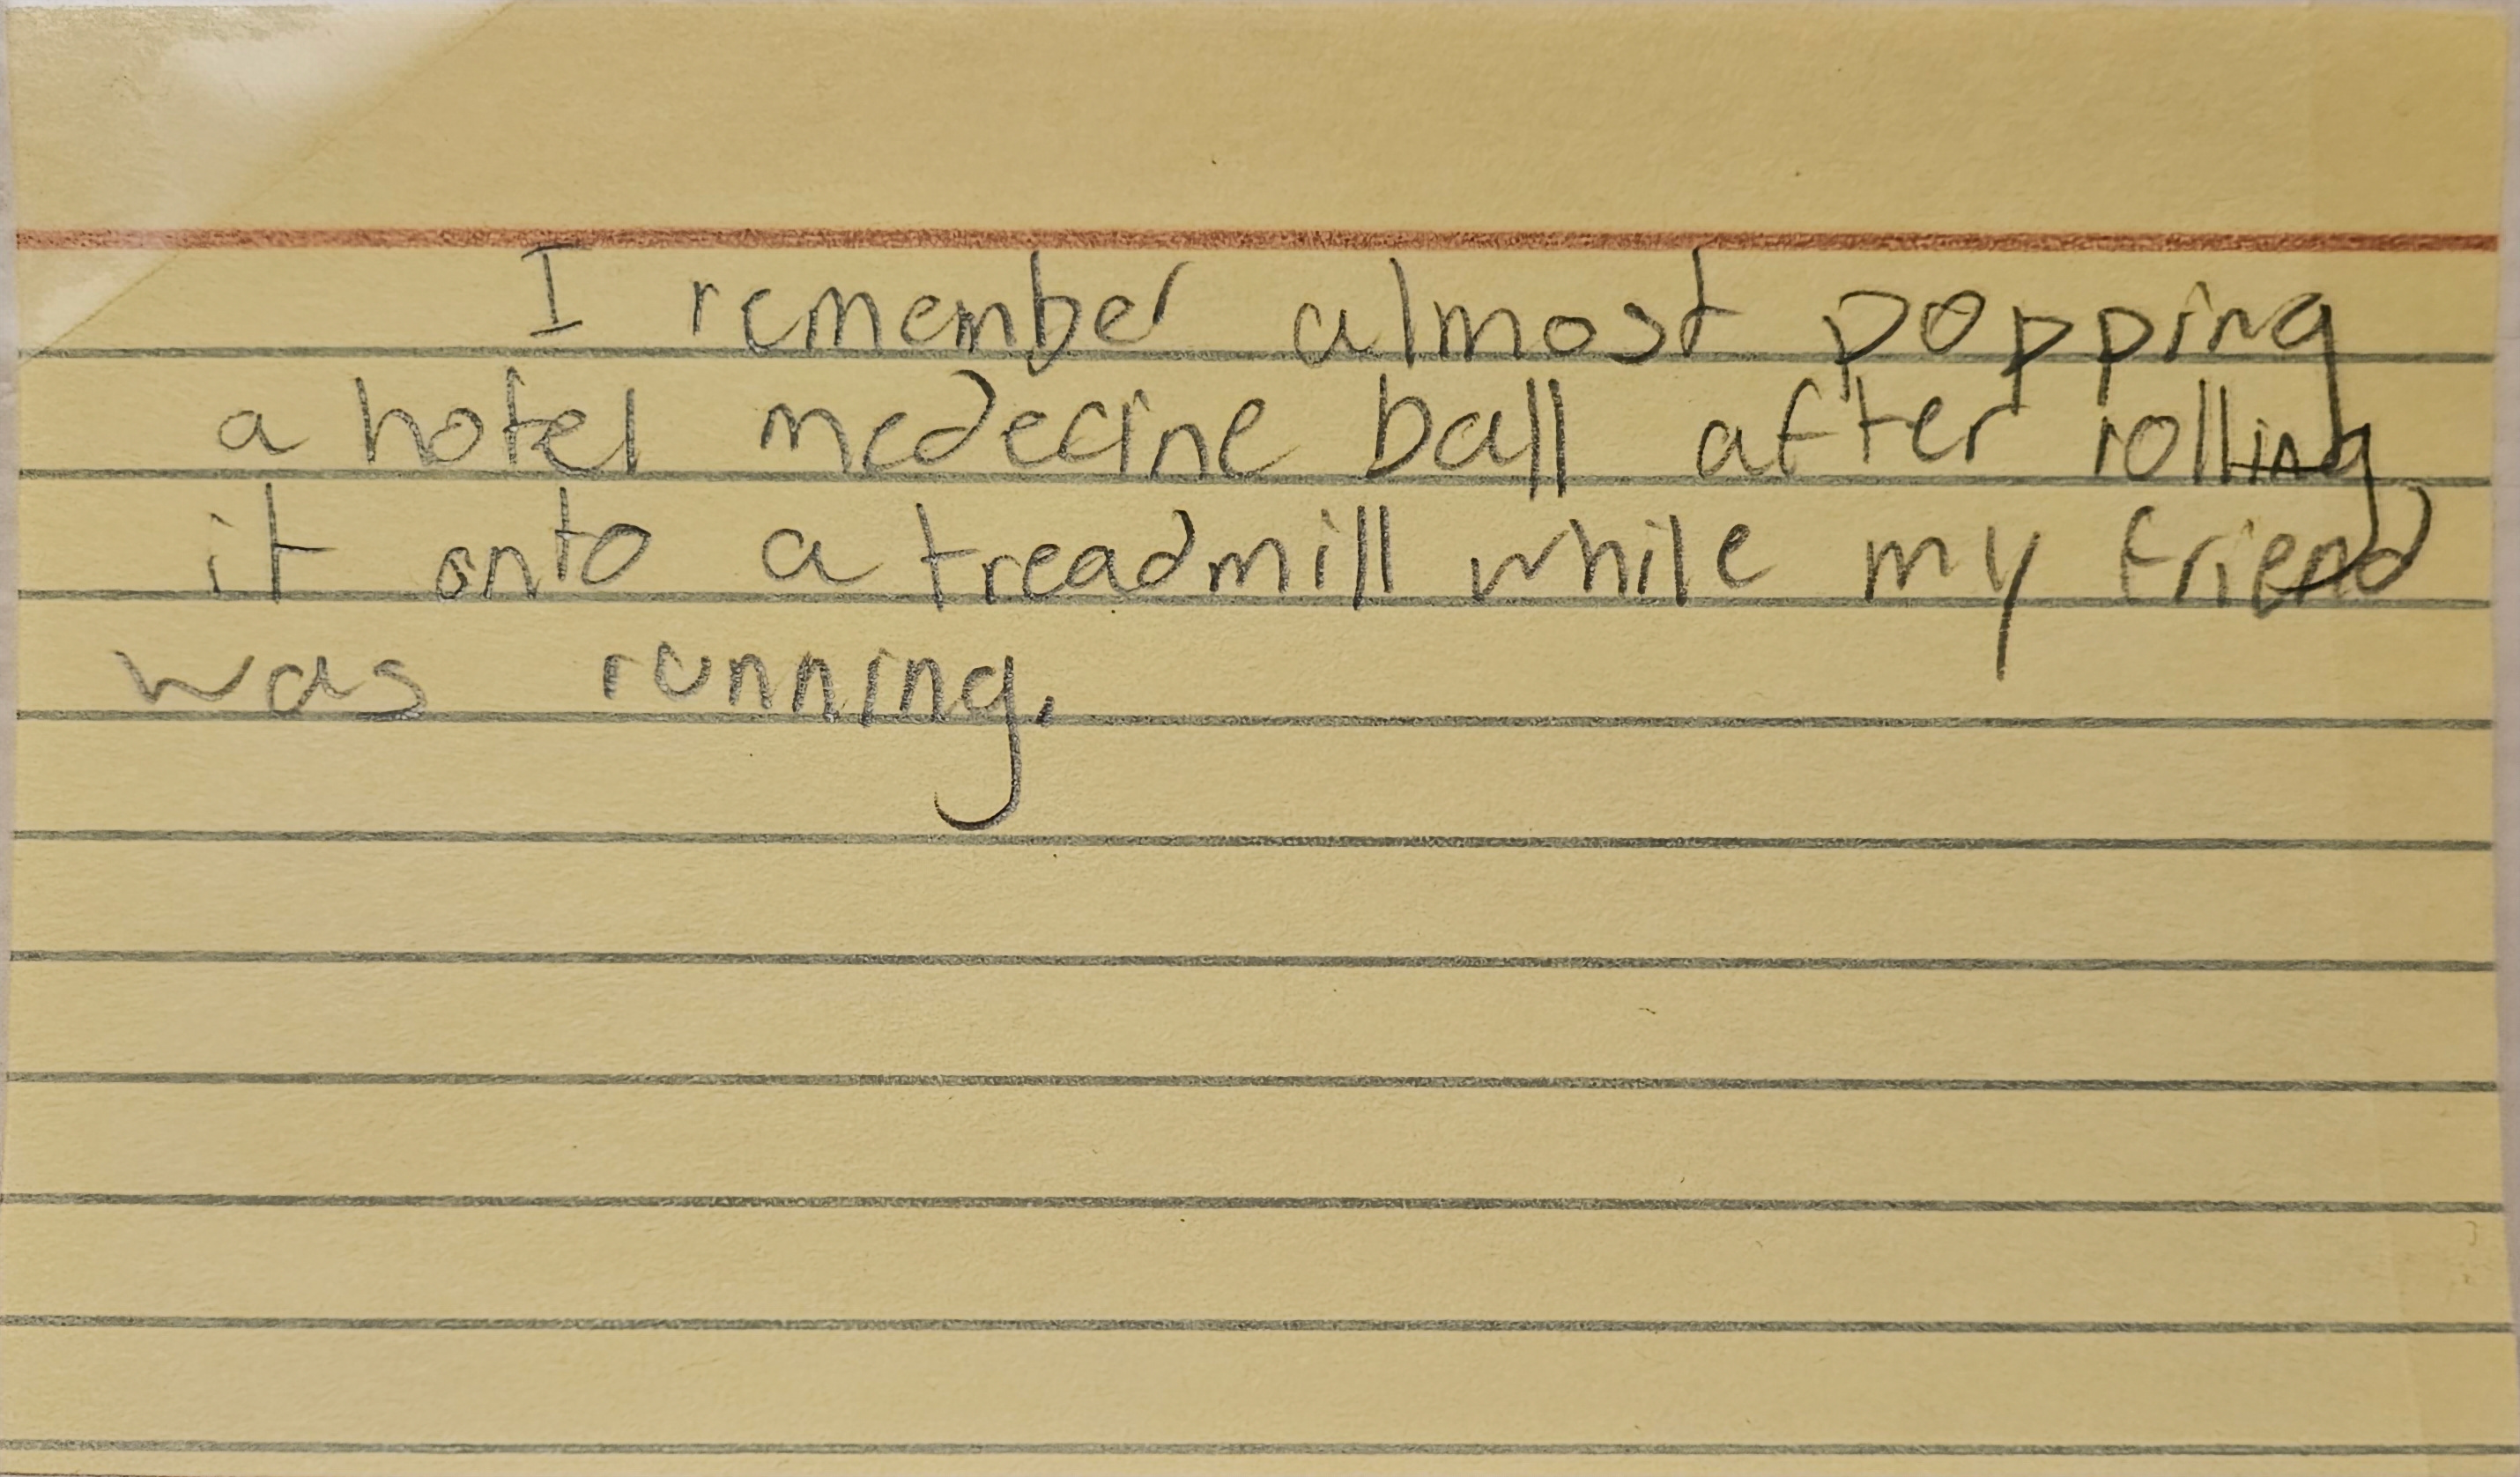 I remember almost popping
a hotel medecine ball after rolling
it onto a treadmill while my friend
was running.